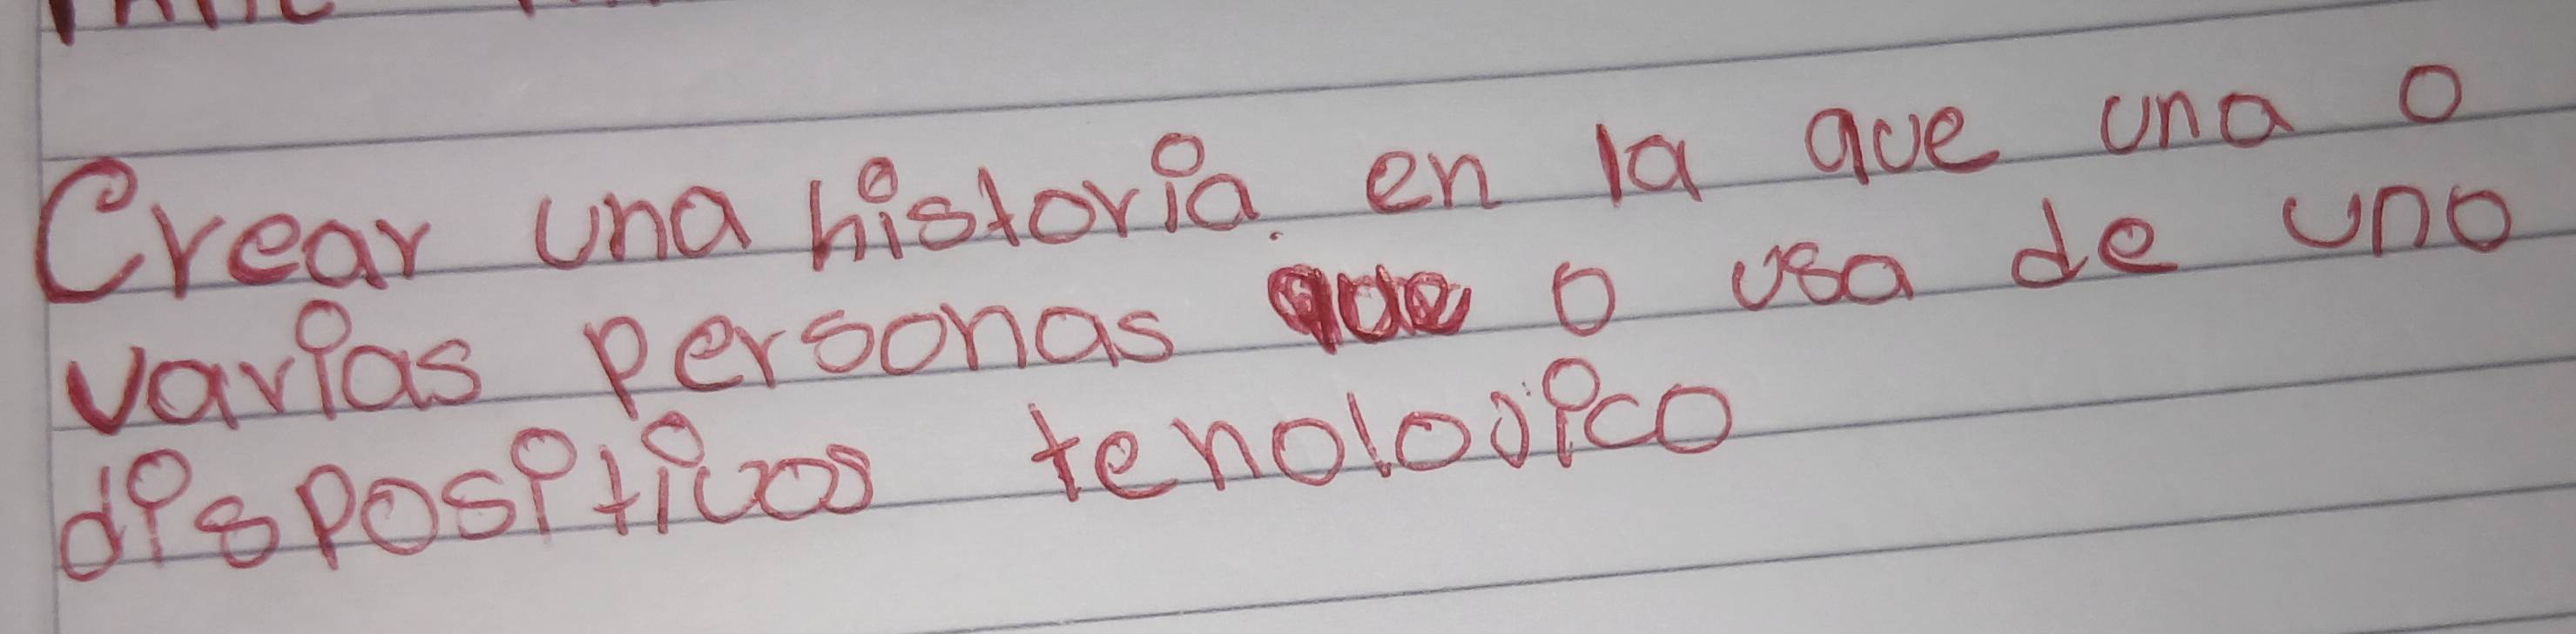 Crear una historia. en la que una o
varias personas que o usa de uno
dispositivos tenolojico